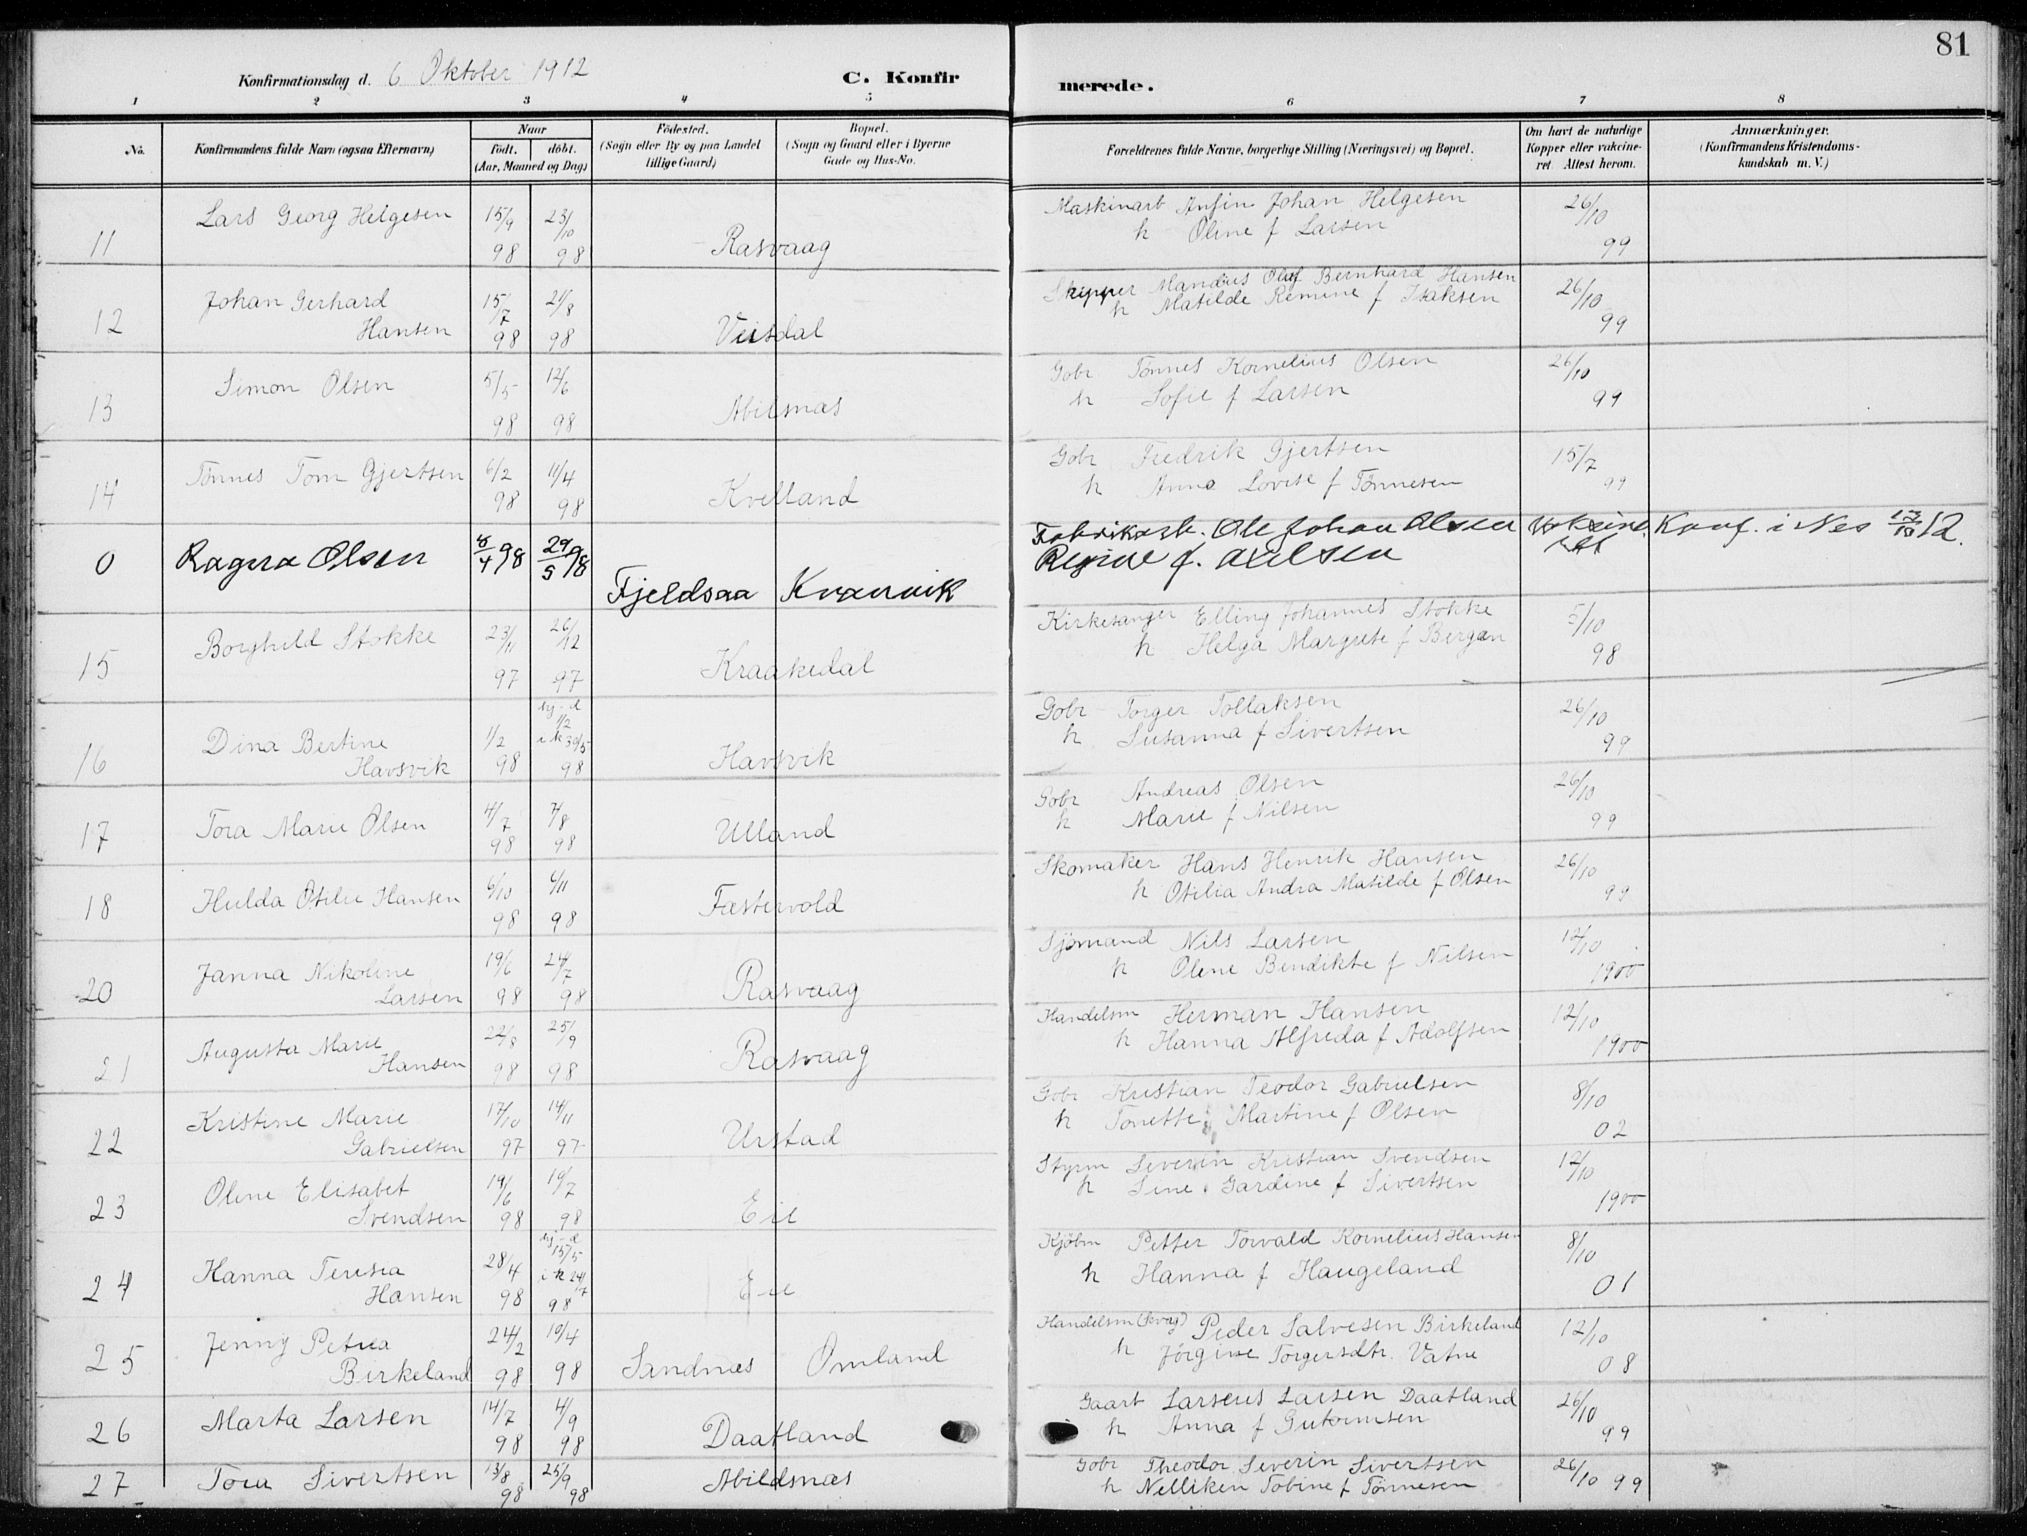 81
Konfirmationsdag d. 6 Oktober 1912
C. Konfir
merede.
1 2 3 4 5 6 7 8
No.
Konfirmandens fulde Navn (ogsaa Efternavn)
Naar
født. døbt.
(Aar, Maaned og Dag)
Fødested.
(Sogn eller By og paa Landet
tillige Gaard)
Bopæl.
(Sogn og Gaard eller i Byerne
Gade og Hus-No.
Forældrenes fulde Navne, borgerlige Stilling (Næringsvei) og Bopæl.
Om havt de naturlige
Kopper eller vakcine-
ret. Attest herom.
Anmærkninger.
(Konfirmandens Kristendoms-
kundskab m. V.)
11 Lars Georg Helgesen 15/9 98 23/10 98 Rasvaag
Maskinarb Anfin Johan Helgesen 26/10 99
h Oline f Larsen
12 Johan Gerhard 15/7 98 21/8 98 Veisdal
Hansen
Skipper Mandius Olaf Bernhard Hansen 26/10 99
h Matilde Remine f Isaksen
13 Simon Olsen 5/5 98 12/6 98 Abilsnas
Gobr Tønnes Kornelius Olsen 26/10 99
h Sofie f Larsen
14 Tønnes Tom Gjertsen 6/2 98 11/4 98 Kvelland
Gobr Fredrik Gjertsen 15/7 99
h Anna Lovise f Tønnesen
0 Ragna Olsen 8/4 98 29/5 98 Fjeldsaa Kvanvik
Fabrikarb. Ole Johan Olsen Konf. i Nes 13/10 12.
Regine f. Axelsen
15 Borghild Stokke 23/11 97 26/12 97 Kraakedal
Kirkesanger Elling Johannes Stokke 5/10 98
h Helga Margrete f Bergan
16 Dina Bertine 1/2 98 hj-d 1/2 i k 30/5 98 Havsvik
Havsvik
Gobr Torger Tollaksen 26/10 99
h Susanna f Sivertsen
17 Tora Marie Olsen 4/7 98 7/8 98 Ulland
Gobr Andreas Olsen 26/10 99
h Marie f Nilsen
18 Hulda Otilie Hansen 6/10 98 6/11 98 Fastervold
Skomaker Hans Henrik Hansen 26/10 99
h Otilia Andra Matilde f Olsen
20 Janna Nikoline 19/6 98 24/7 98 Rasvaag
Larsen
Sjømand Nils Larsen 12/10 1900
h Oline Bendikte f Nilsen
21 Augusta Marie 22/8 98 25/9 98 Rasvaag
Hansen
Handelsm Herman Hansen 12/10 1900
h Hanna Alfreda f Adolfsen
22 Kristine Marie 17/10 97 14/11 97 Urstad
Gabrielsen
Gobr Kristian Teodor Gabrielsen 8/10 02
h Tonette Martine f Olsen
23 Oline Elisabet 19/6 98 19/7 98 Eie
Svendsen
Styrm Severin Kristian Svendsen 12/10 1900
h Sine Gardine f Sivertsen
24 Hanna Teresia 28/4 98 hj-d 15/5 i k 24/7 98 Eie
Hansen
Kjøbm Petter Torvald Kornelius Hansen 8/10 01
h Hanna f Haugeland
25 Jenny Petrea 24/2 98 19/4 98 Sandnes Omland
Birkeland
Handelsm Peder Salvesen Birkeland 12/10 08
h Jørgine Torgersdtr. Vatne
26 Marta Larsen 14/7 98 4/9 98 Daatland
Gaarb Larseus Larsen Daatland 26/10 99
h Anna f Gutormsen
27 Tora Sivertsen 13/8 98 25/9 98 Abildsnæs
Gobr Theodor Severin Sivertsen 26/10 99
h Nelliken Tobine f Tønnesen